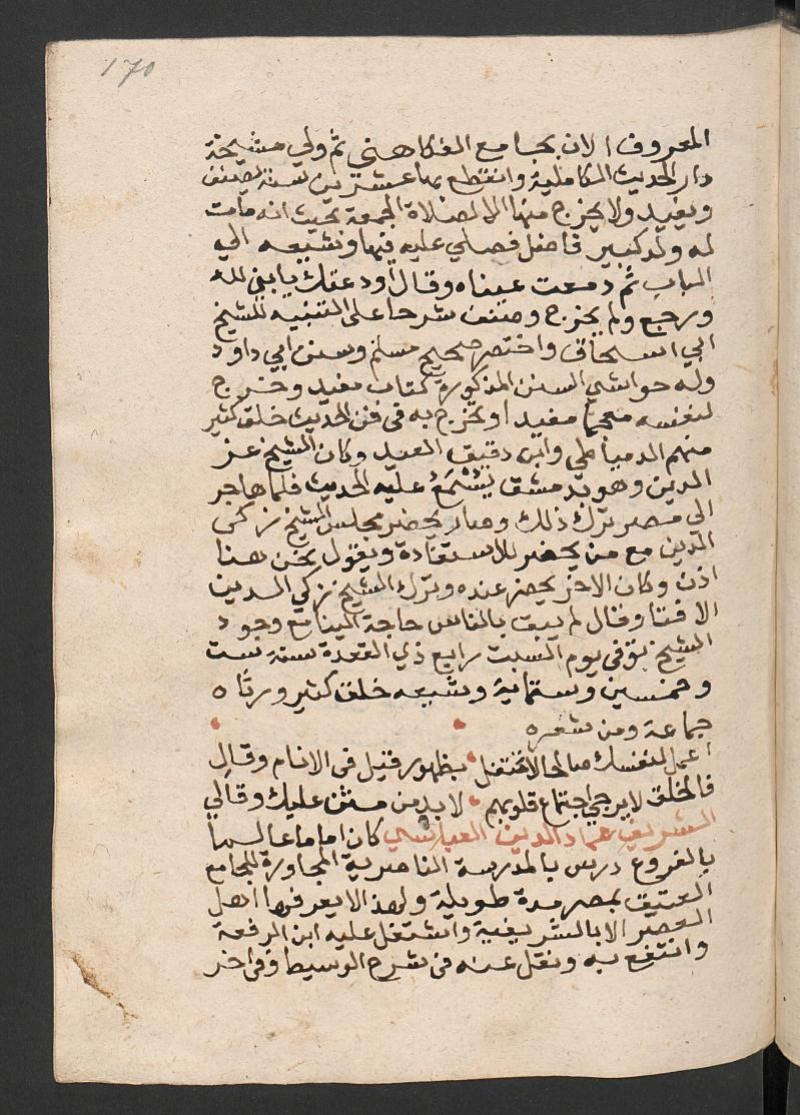 170
المعروف الان بجامع الفكاهني ثم ولي مشيخة
دار الحديث الكاملية وانقطع بها عشرين سنة يصنف
ويفيد ولا يخرج منها الا لصلاة الجمعة بحيث انه مات
له ولد كبير فاضل فصلي عليه فيها وشيعه الي
الباب ثم دمعت عيناه وقال اودعتك يا بني لله
ورجع ولم يخرج وصنف شرحا على التنبيه للشيخ
ابي اسحاق واختصر صحيح مسلم وسنن ابي داود
وله حواشي السنن المذكورة كتاب مفيد وخرج
لنفسه معجما مفيدا وتخرج به في فن الحديث خلق كثير
منهم الدمياطي وابن دقيق العيد وكان الشيخ عز
الدين وهو بدمشق يُسْمَعُ عليه الحديث فلما هاجر
الى مصر ترك ذلك وصار يحضر مجلس الشيخ زكى
الدين مع من يحضر للاستفادة ويقول نحن هنا
اذن وكان الاخر يحضر عنده وترك الشيخ زكي الدين
الافتا وقال لم يبق بالناس حاجة الينا مع وجود
الشيخ توفى يوم السبت رابع ذي القعدة سنة ست
وخمسين وستماية وشيعه خلق كثير ورثاه
جماعة ومن شعره
اعمل لنفسك صالحا لا تحتفل بظهور قيل في الانام وقال
فالخلق لا يرجي اجتماع قلوبهم لا بد من مثن عليك وقالي
الشريف عماد الدين العباسي كان اماما عالما
بالفروع درس بالمدرسة الناصرية المجاورة للجامع
العتيق بمصر مدة طويلة ولهذا لا يعرفها اهل
العصر الا بالشريفية واشتغل عليه ابن الرفعة
وانتفع به ونقل عنه في شرح الوسيط وفي اخر